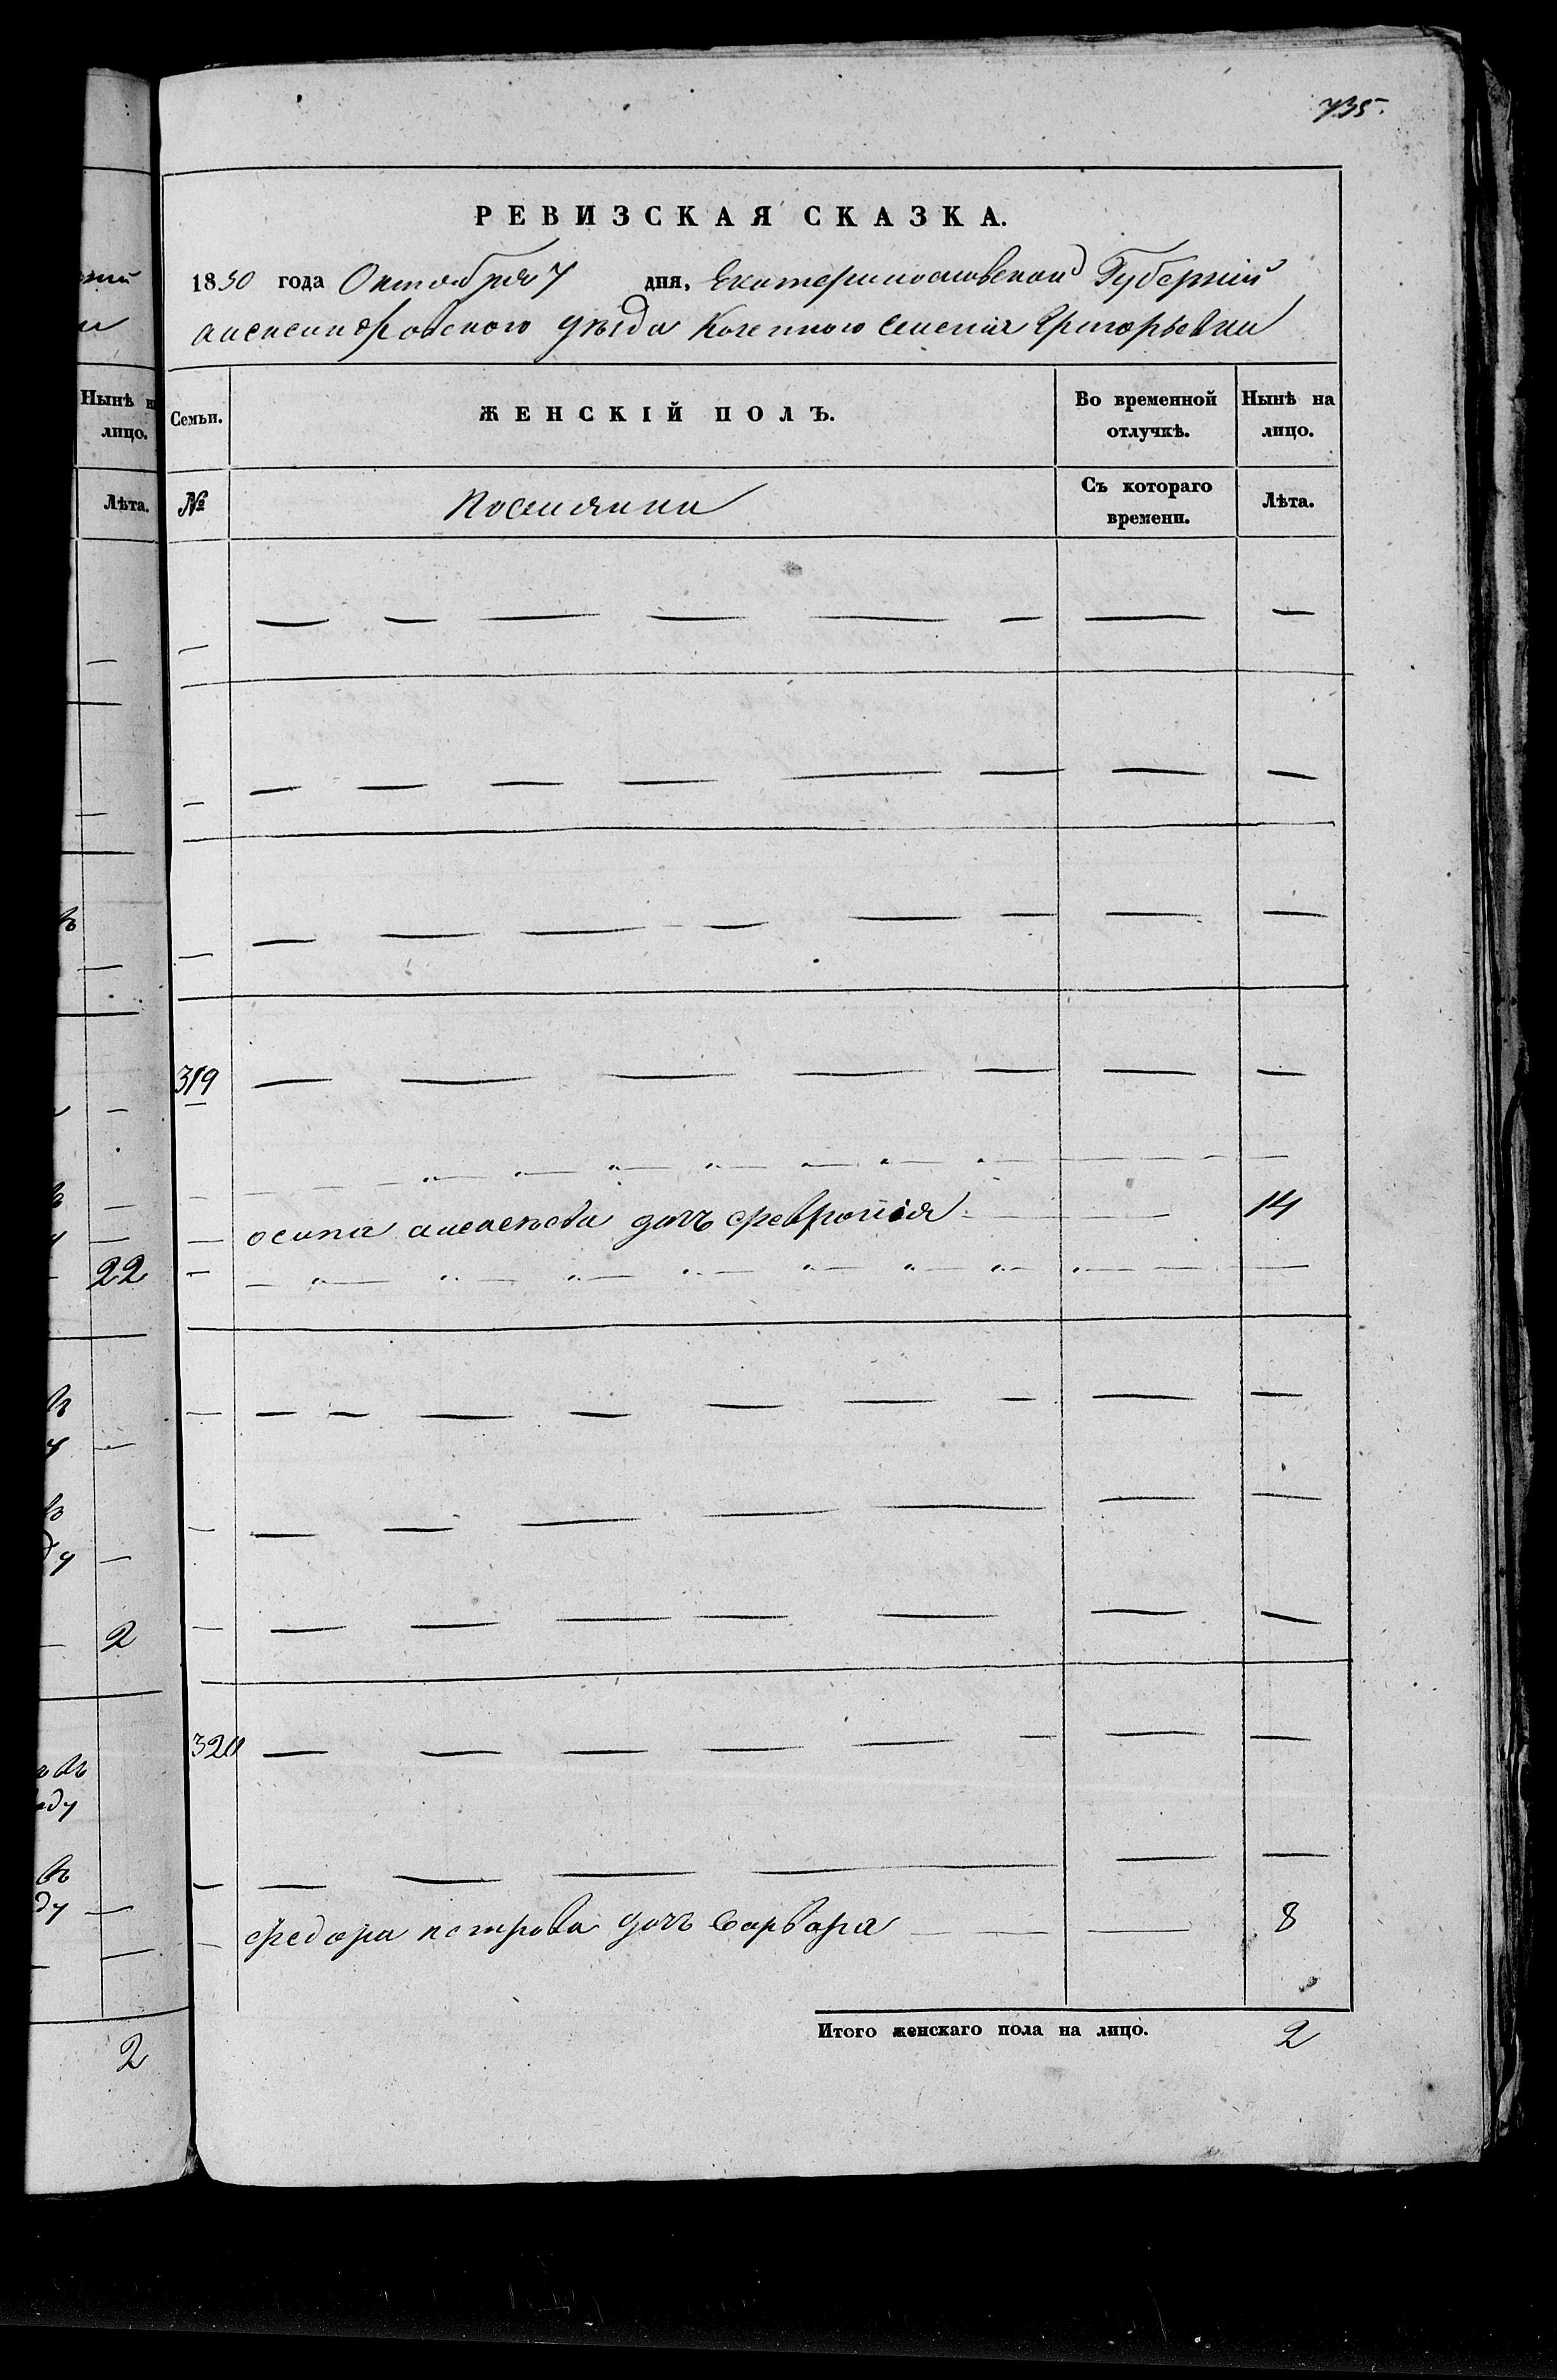 735.
РЕВИЗСКАЯ СКАЗКА.
1850 года Октября 7 дня, Екатеринославской Губерніи
Александровскаго уѣзда Казеннаго селенія Григорьевки
Нынѣ
лицо.
Лѣта.
Семьи. ЖЕНСКІЙ ПОЛЪ. Во временной отлучкѣ. Нынѣ на лицо.
№ Поселянки Съ котораго времени. Лѣта.
319
осипа алексѣева дочь Февронія 14
22
2
320
Федора петрова дочь Варвара 8
Итого женскаго пола на лицо. 2
2